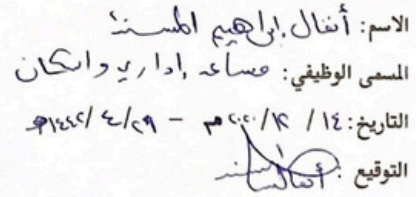 الاسم: أنفال إبراهيم المسند
المسمى الوظيفي: مساعد إداري واسكان
التاريخ: ١٤ / ١٢ / ٢٠٢٠م - ٢٩/ ٤/ ١٤٤٢هـ
التوقيع: أنفال المسند